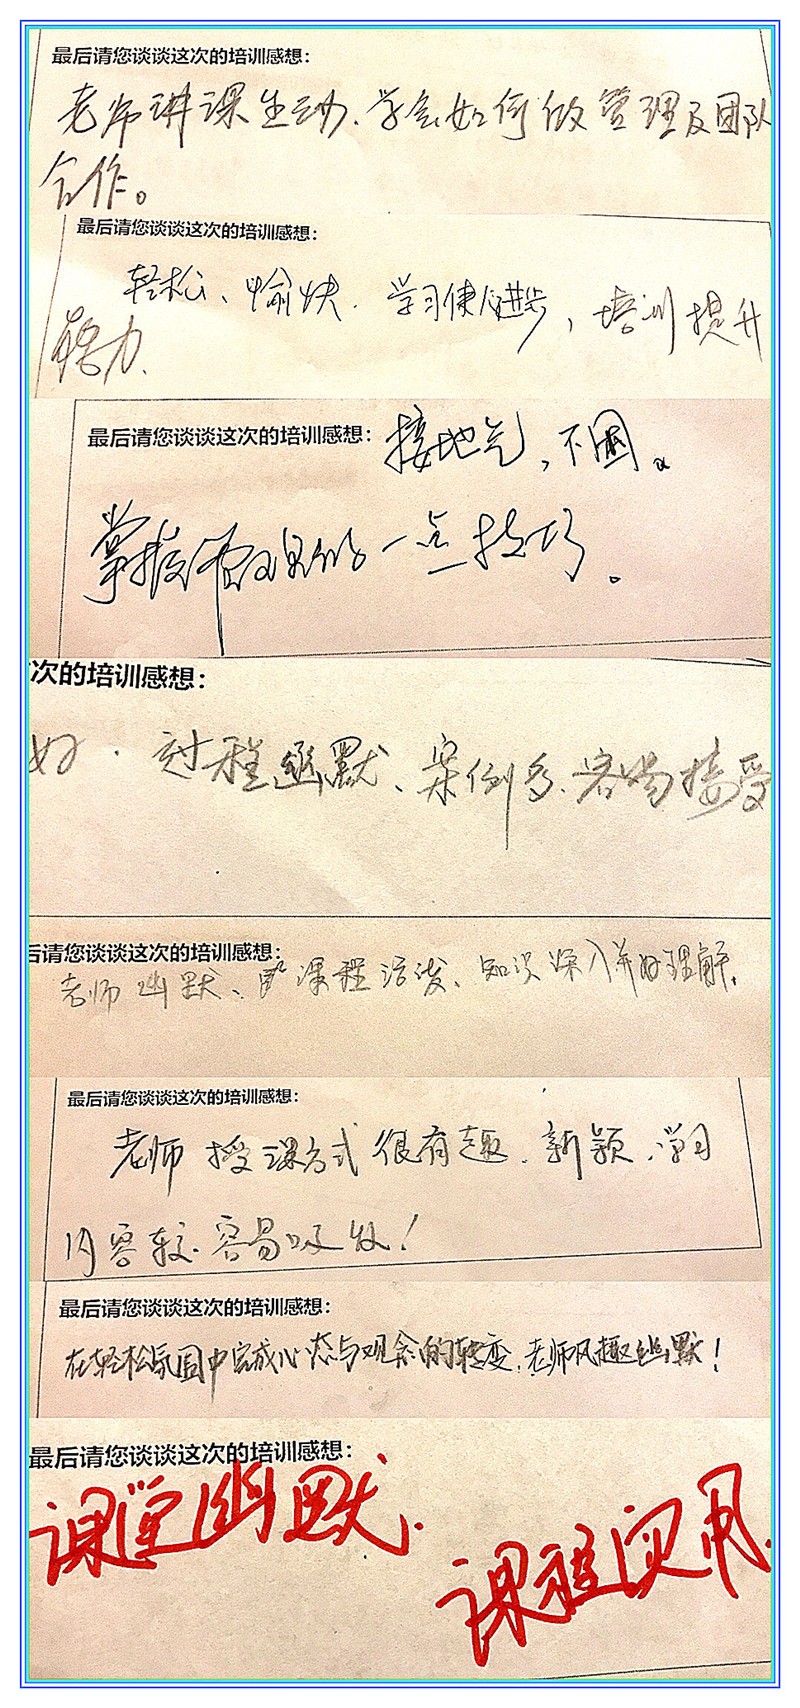 最后请您谈谈这次的培训感想：
老师讲课生动、学会如何做管理及团队
合作。
最后请您谈谈这次的培训感想：
轻松、愉快．学习使人进步，培训提升
能力．
最后请您谈谈这次的培训感想：接地气，不困。
掌握 一点技巧。
次的培训感想：
好．过程幽默、案例多、容易接受
后请您谈谈这次的培训感想：
老师幽默、课程活泼、知识深入并好理解．
最后请您谈谈这次的培训感想：
老师授课方式很有趣．新颖．学习
内容较容易吸收！
最后请您谈谈这次的培训感想：
在轻松氛围中完成心态与观念的转变，老师风趣幽默！
最后请您谈谈这次的培训感想：
课堂幽默．
课程实用．